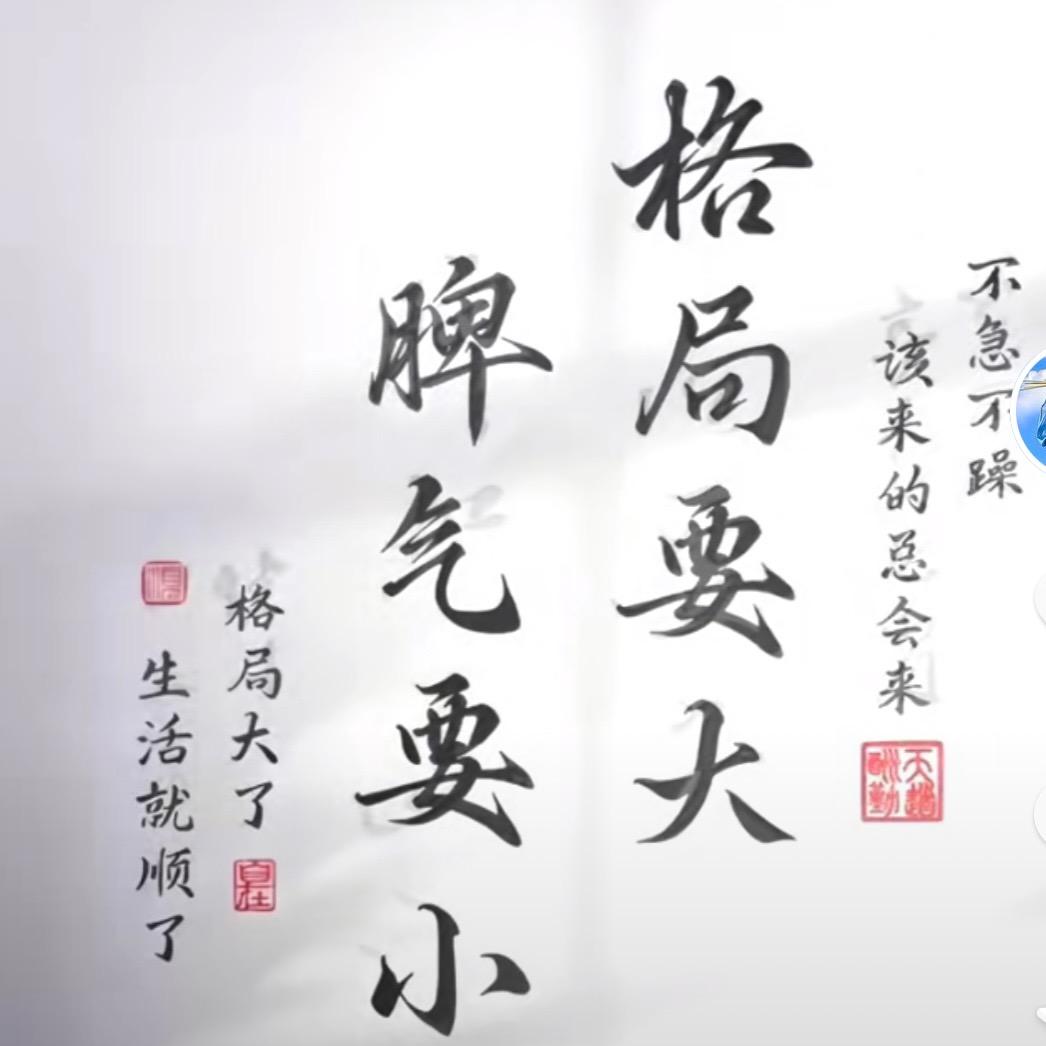 不急不躁
该来的总会来
天道酬勤
格局要大
脾气要小
格局大了
自在
生活就顺了